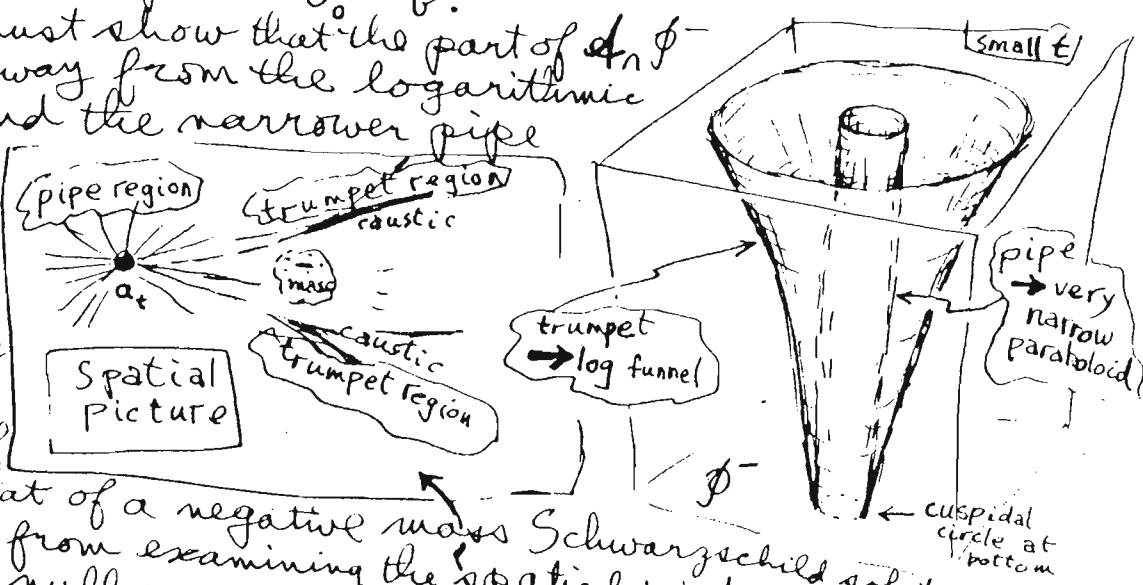 ust show that the part of
way from the logarithmic
nd the narrower pipe
pipe region
trumpet region
caustic
mass
a_t
caustic
trumpet region
Spatial
picture
small t
trumpet
→ log funnel
pipe
→ very
narrow
paraboloid
ϕ⁻
cuspidal
circle at
bottom
at of a negative mass Schwarzschild
from examining the spatial